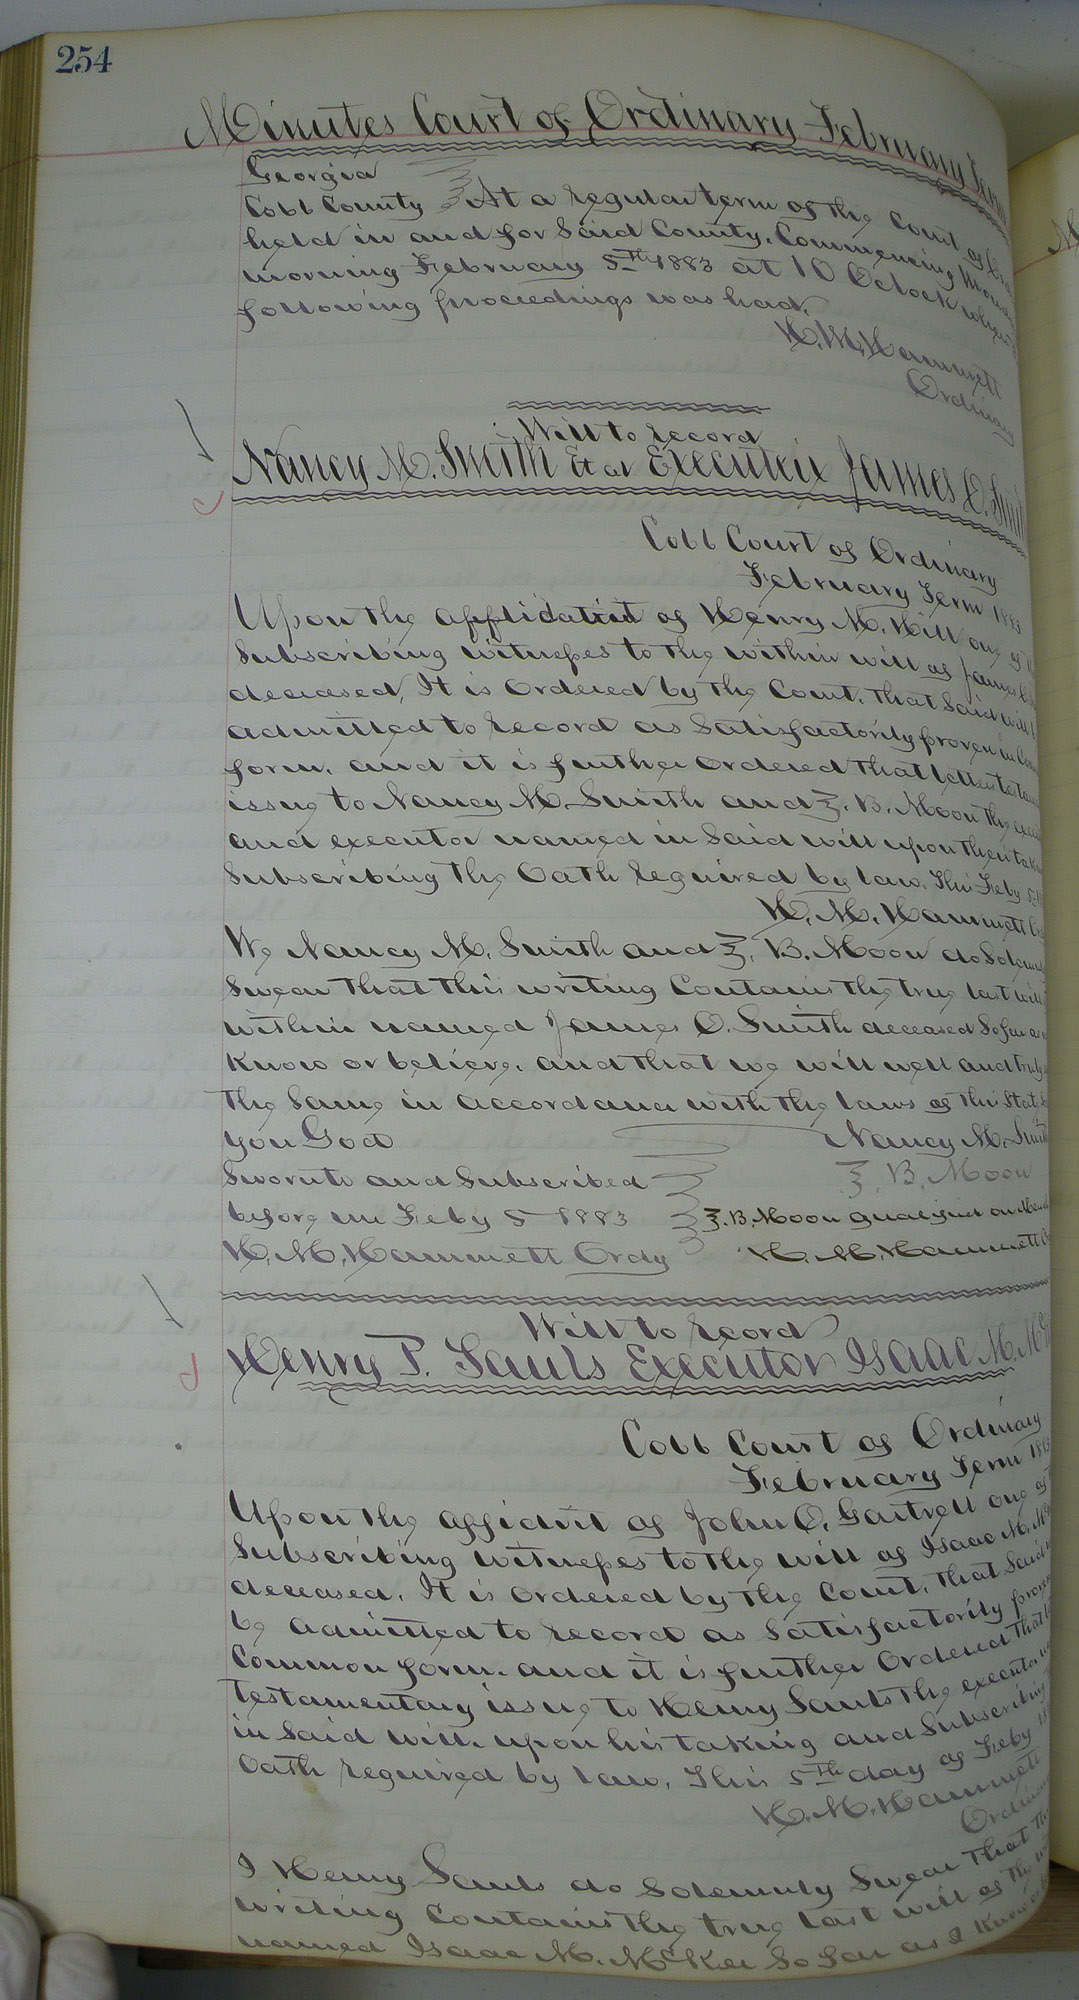 254
Minutes Court of Ordinary February Term
Georgia
Cobb County At a regular term of the Court of
held in and for Said County, Commencing
morning February 5th 1883 at 10 Oclock when
following proceedings was had.
H. M. Hammett
Ordinary
Will to record
Nancy M. Smith Et al Executrix James O. Smith
Cobb Court of Ordinary
February Term 1883
Upon the of Henry M. Hill one of
Subscribing witnesses to the within will of James
deceased, It is Ordered by the Court, that Said will
admitted to record as Satisfactorily proven in
form. and it is further Ordered that letters
issue to Nancy M. Smith and Z. B. Moon the
and executor named in Said will upon their
Subscribing the Oath required by law. This Feby 5
H. M. Hammett
We Nancy M. Smith and Z. B. Moon do
Swear that this writing Contains the true last will
within named James O. Smith deceased So far as
Know or believe. and that we will well and truly
the Same in accordance with the laws of this State
you God Nancy M. Smith
Sworn to and Subscribed Z. B. Moon
before me Feby 5 1883 Z. B. Moon qualified on
H. M. Hammett Ordy H. M. Hammett
Will to record
Henry P. Sauls Executor Isaac M.
Cobb Court of Ordinary
February Term
Upon the affidvit of John O. Gartrell one of
Subscribing witnesses to the will of Isaac M.
deceased. It is Ordered by the Court, that Said
be admitted to record as Satisfactorily proven
Common form. and it is further Ordered that
testamentary issue to Henry Sauls the executor
in Said will. upon his taking and Subscribing
Oath required by law, This 5th day of Feby
H. M. Hammett
Ordinary
I Henry Sauls do Solemnly Swear that
writing Contains the true last will of the
named Isaac M. McKee So far as I Know